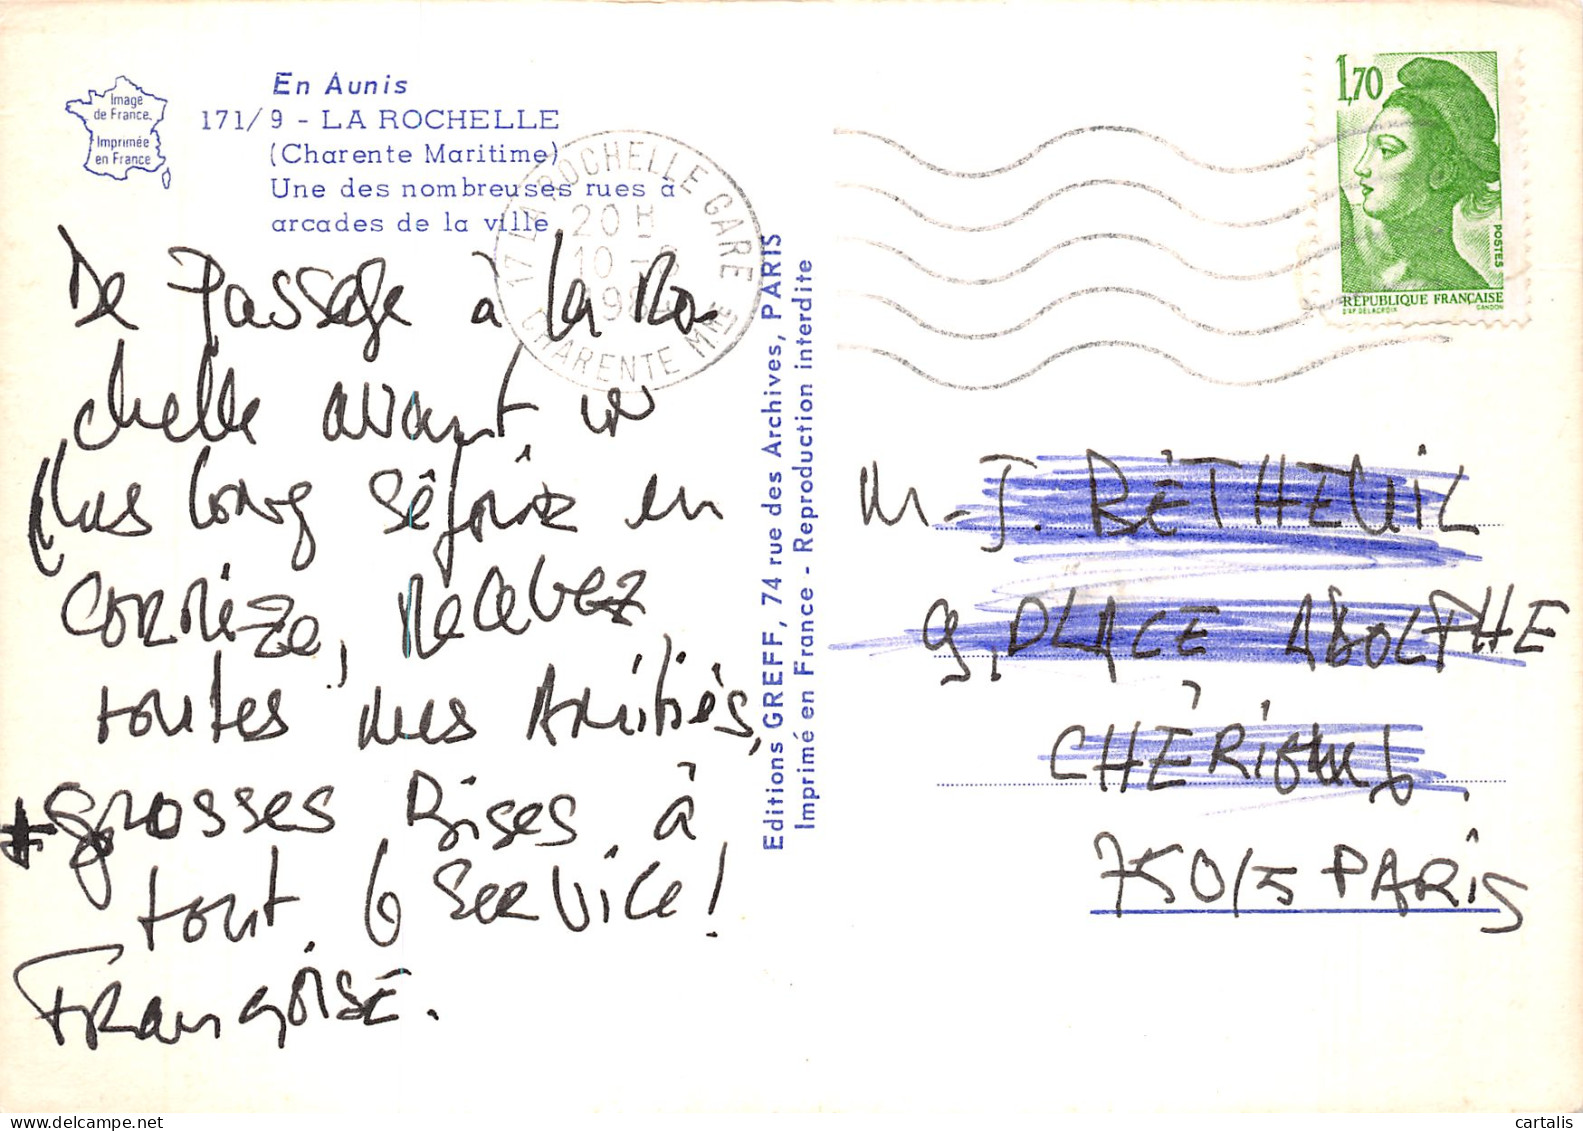 Image
de France
Imprimée
en France
En Aunis
171/9 - LA ROCHELLE
(Charente Maritime)
Une des nombreuses rues à
arcades de la ville
17 LA ROCHELLE GARE
20H
10 -
CHARENTE Mme
1,70
POSTES
RÉPUBLIQUE FRANÇAISE
D'AP. DELACROIX GANDON
De Passage à la Ro-
chelle avant un
plus long séjour en
Corrèze, recevez
toutes mes Amitiés,
+ grosses Bises à
tout le service!
Françoise.
Editions GREFF, 74 rue des Archives, PARIS
Imprimé en France - Reproduction interdite
M. J. BÉTHEUIL
9, PLACE ADOLPHE
CHÉRIOUX,
75015 PARIS
cartalis